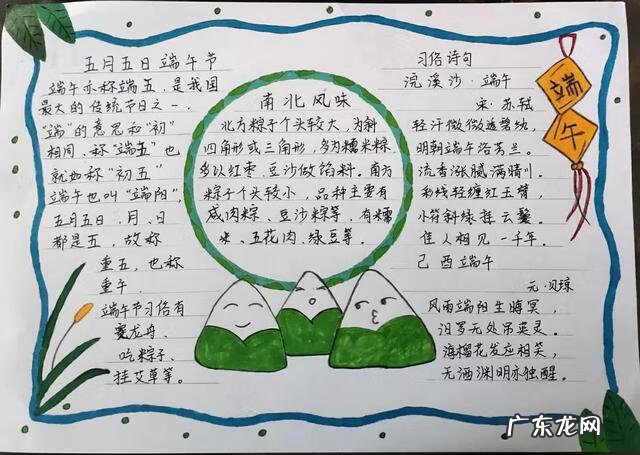 五月五日端午节
端午亦称端五,是我国
最大的传统节日之一,
"端"的意思和"初"
相同,称"端五"也
就如称"初五"
端午也叫"端阳",
五月五日,月、日
都是五,故称
重五,也称
重午。
端午节习俗有
赛龙舟、
吃粽子、
挂艾草等。
南北风味
北方粽子个头较大,为斜
四角形或三角形,多为糯米粽
多以红枣、豆沙做馅料。南方
粽子个头较小,品种主要有
咸肉粽、豆沙粽等,有糯
米、五花肉、绿豆等。
习俗诗句
浣溪沙·端午
宋·苏轼
轻汗微微透碧纨,
明朝端午浴芳兰。
流香涨腻满晴川。
彩线轻缠红玉臂,
小符斜绿挂云鬟。
佳人相见一千年。
己酉端午
元·贝琼
风雨端阳生晦冥,
汨罗无处吊英灵。
海榴花发应相笑,
无酒渊明亦独醒。
端
午
广东龙网